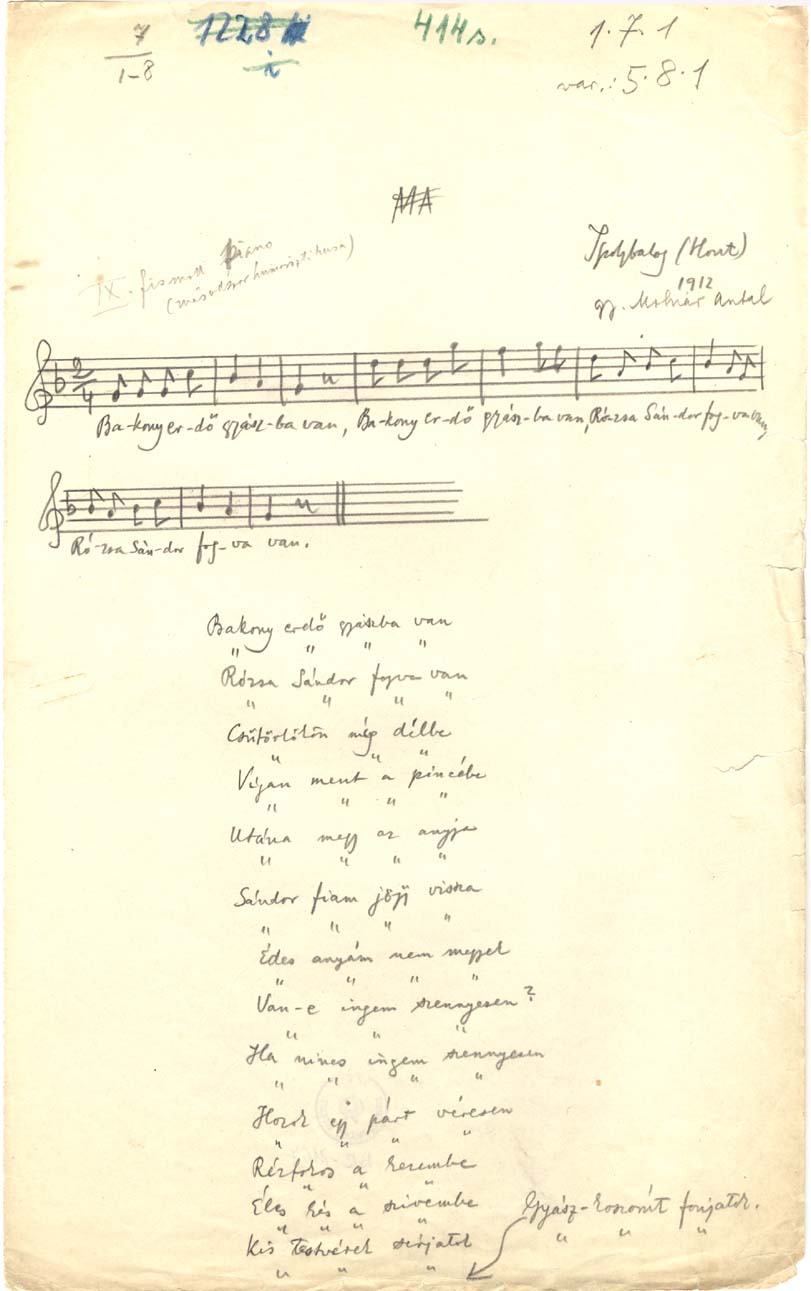 7 1228 414s. 1.7.1
1-8 i var.: 5.8.1
MA
IX. fismoll piano
(másodszor humorisztikusa)
Ipolybalog (Hont)
1912
gy. Molnár Antal
2
4
Ba-kony er-dő gyász-ba van, Ba-kony er-dő gyász-ba van, Ró-zsa Sán-dor fog-va van,
Ró-zsa Sán-dor fog-va van.
Bakony erdő gyászba van
" " " "
Rózsa Sándor fogva van
" " " "
Csütörtökön még délbe
" " "
Vígan ment a pincébe
" " " "
Utána megy az anyja
" " " "
Sándor fiam jöjj vissza
" " " "
Édes anyám nem megyek
" " " "
Van-e ingem szennyesen?
" " "
Ha nincs ingem szennyesen
" " " "
Hozok egy párt véresen
" " " "
Rézfokos a kezembe
" " "
Éles kés a szivembe
" " " "
Kis testvérek sírjatok
" " "
Gyász-koszorút fonjatok.
" " "